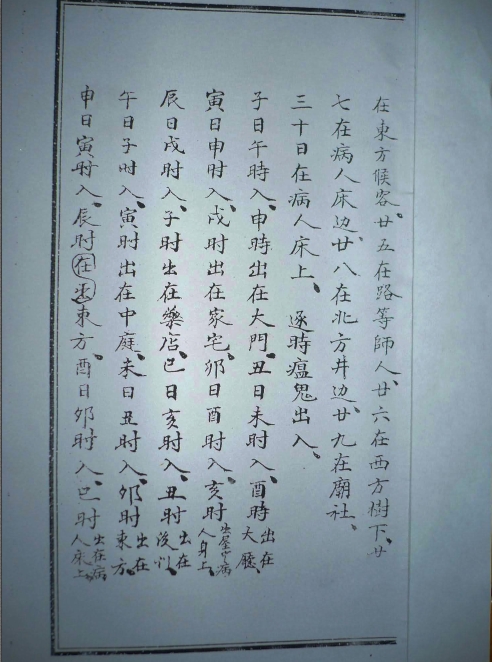 在東方候客。廿五在路等師人。廿六在西方樹下、廿
七在病人床边、廿八在北方井边、廿九在廟社、
三十日在病人床上、逐時瘟鬼出入、
子日午時入、申時出在大門、丑日未时入、酉時出在大廳、
寅日申时入、戌时出在家宅、卯日酉时入、亥时病人身上、
辰日戌时入、子时出在藥店、巳日亥时入、丑时出在後
午日子时入、寅时出在中庭、未日丑时入、卯时出在東方、
申日寅时入、辰时在東方、酉日卯时入、巳时出在病人床上、